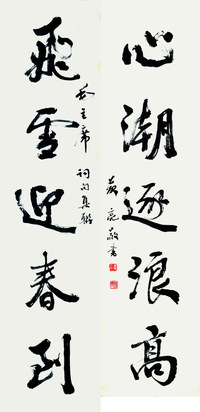 心潮逐浪高
飛雪迎春到
毛主席詞句集聯
敬書